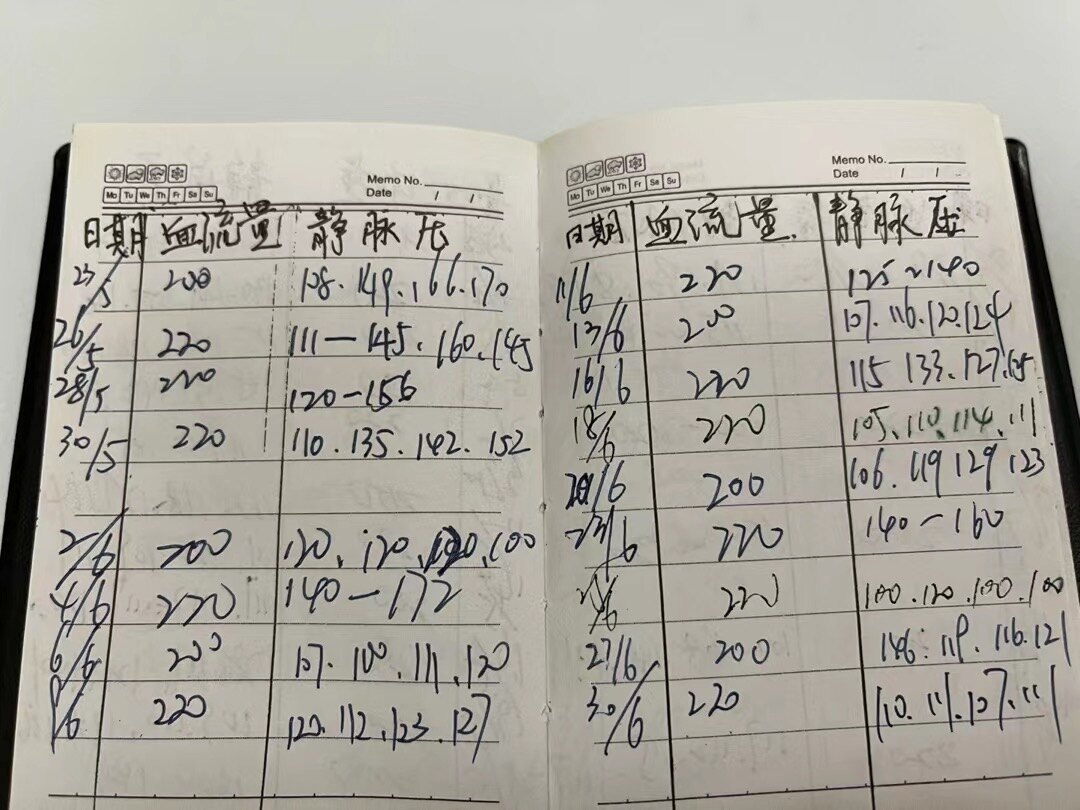 Memo No.
Mo Tu We Th Fr Sa Su
Date / /
日期 血流量 静脉压
23/5 200 108.149.166.170
26/5 220 111—145.160.145
28/5 220 120—156
30/5 220 110.135.142.152
2/6 200 120.120.120.100
4/6 220 140—172
6/6 200 107.100.111.120
9/6 220 120.112.123.127
Memo No.
Mo Tu We Th Fr Sa Su
Date / /
日期 血流量 静脉压
11/6 220 125~140
13/6 200 107.116.120.124
16/6 220 115 133.127.125
18/6 220 105.110.114.111
20/6 200 106.119 129 123
23/6 220 140—160
/6 220 100.120.100.100
27/6 200 119.116.121
30/6 220 110.111.107.111